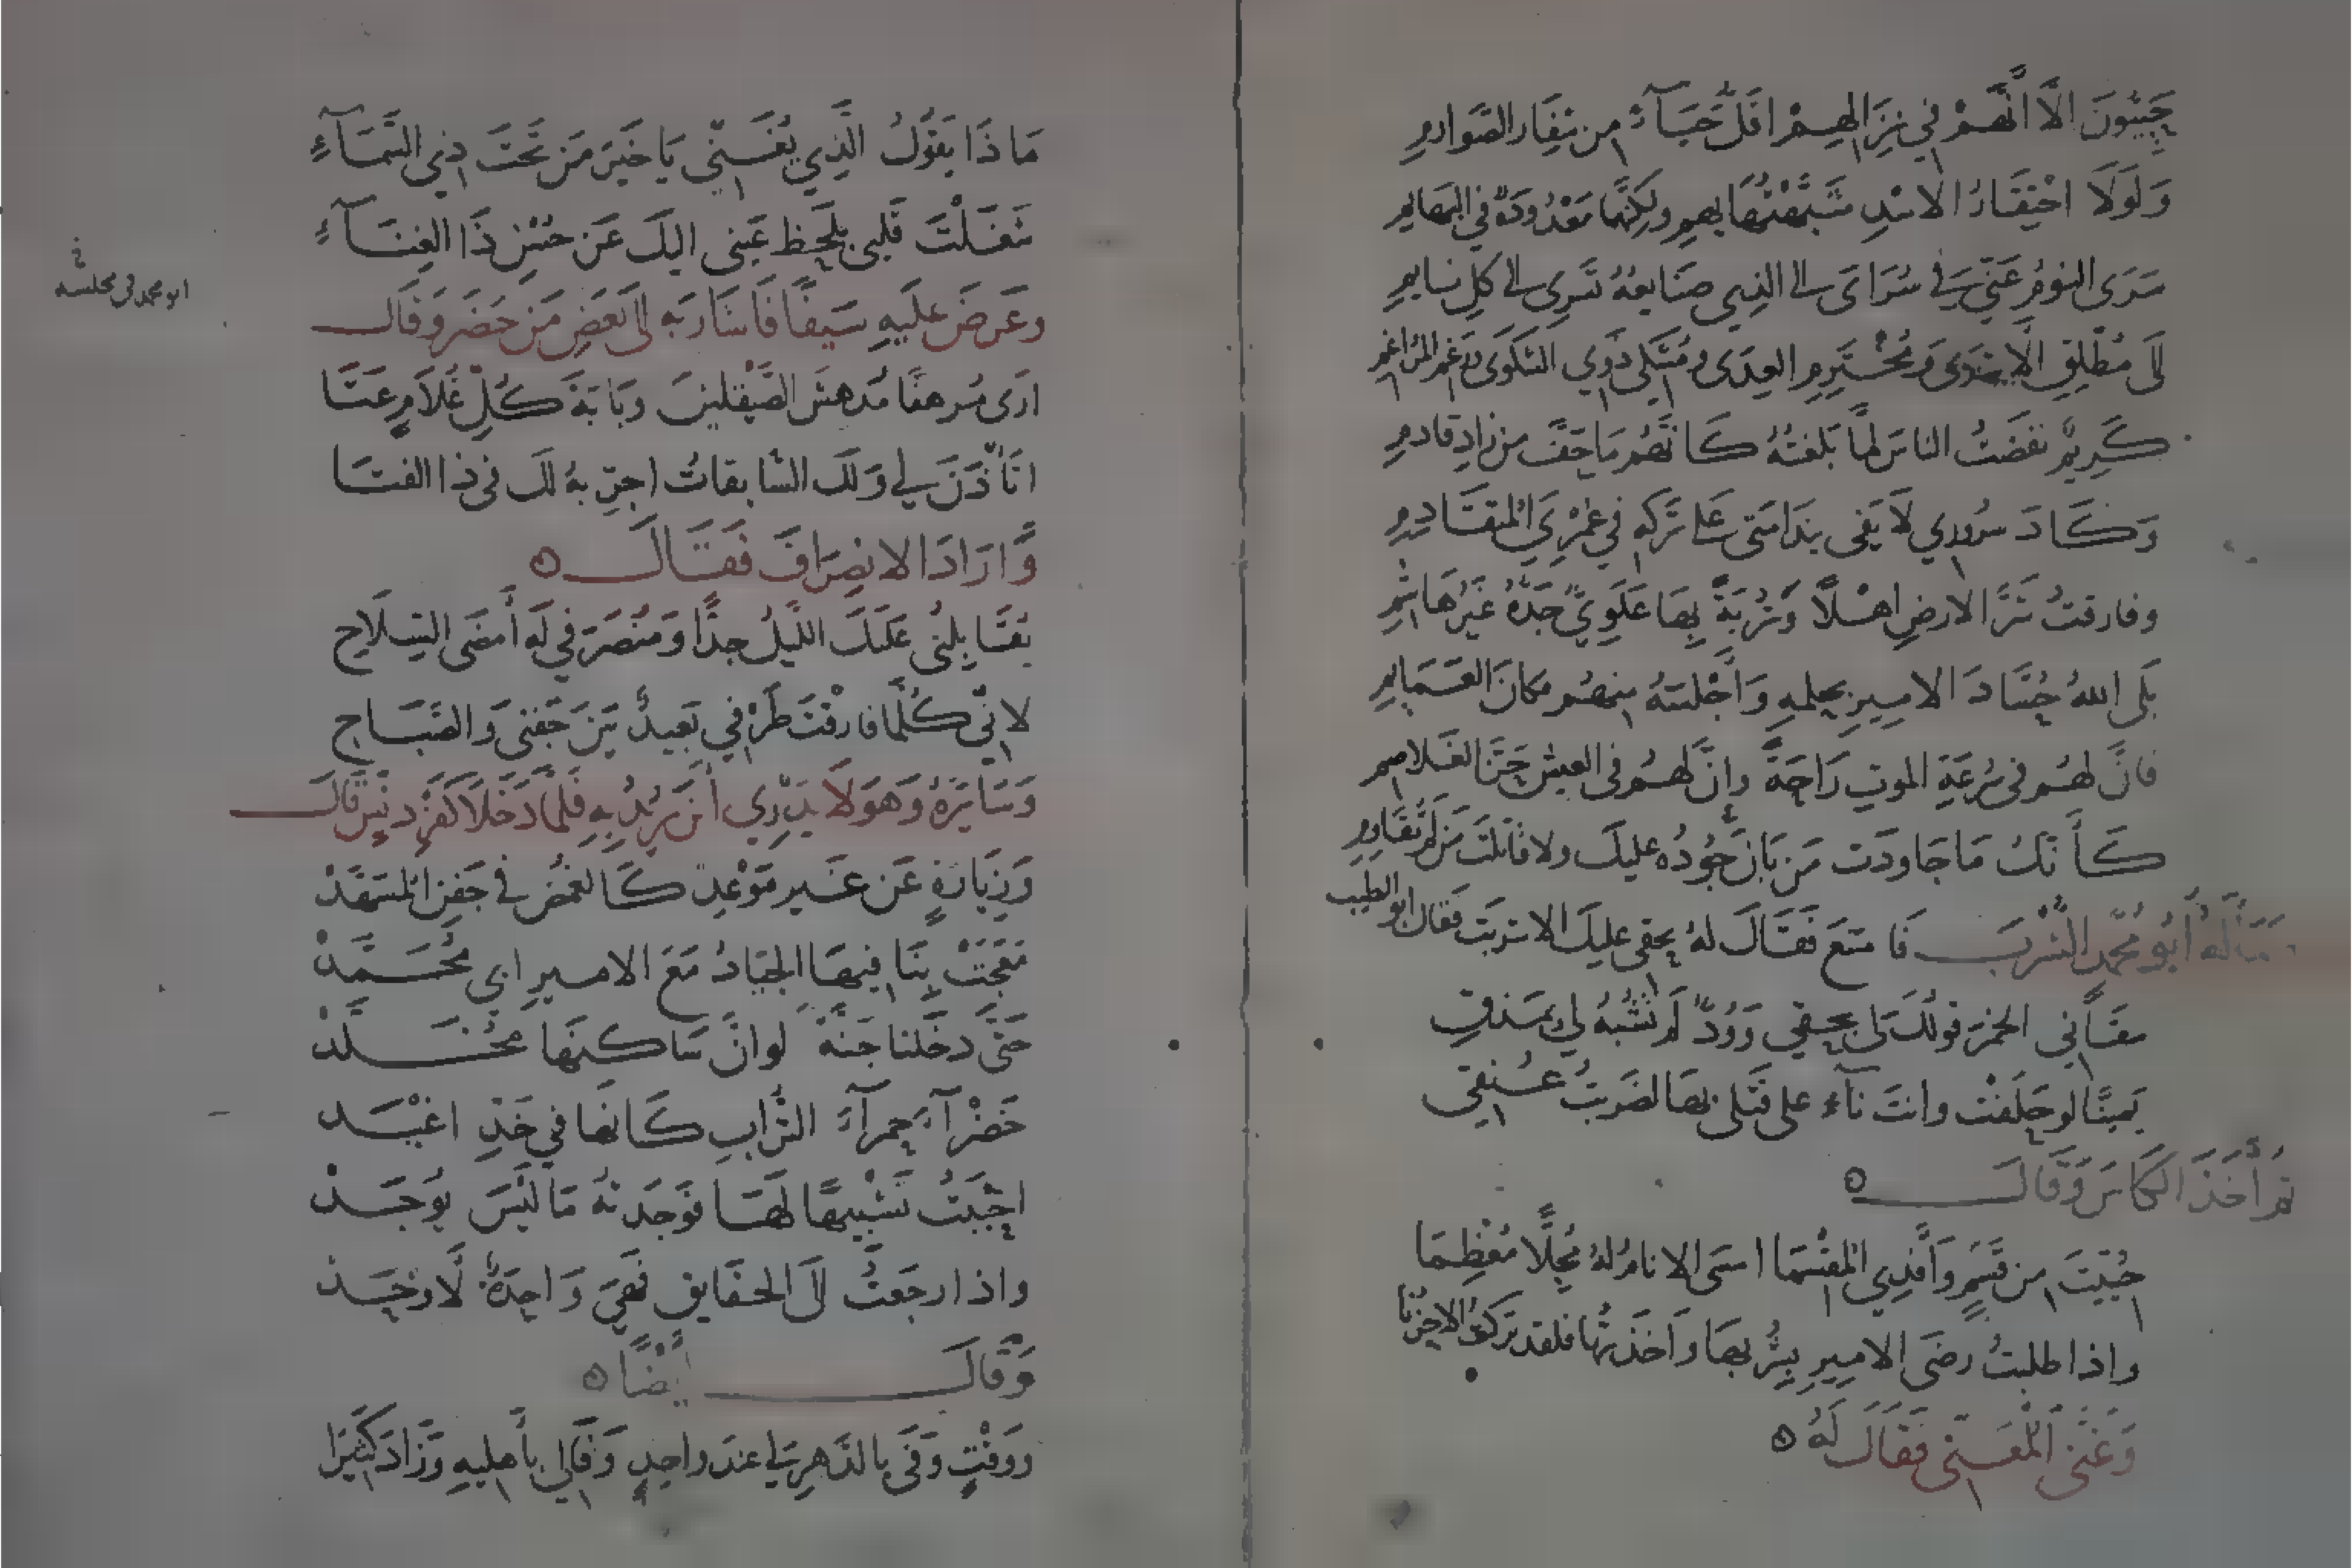 حَيِيُّونَ الَّا انَّهُمْ فِي نِزَالِهِمْ اقَلُّ حَيَآءً مِن شِفَارِ الصَّوَارِمِ
وَلَولَا احْتِقَارُ الاسْدِ شَبَّهْتُهَا بِهِمِ وَلكِنَّهَا مَعْدُودَةٌ فِي البَهَايِمِ
سَرَى النومُ عَنّي في سُرَايَ الى الذِي صَنَايعُهُ تَسْرِى الى كلِ نايمِ
الَى مُطْلِقِ الاسْرَى وَمُخْتَرِمِ العِدَى وَمُشْكِي ذَوِي الشَّكوَى وَرَغْمِ المُرَاغِمِ
كَرِيمٌ نفَضْتُ الناسَ لمَّا بَلغتُهُ كَانَّهُم مَا جَفَّ من زادِ قادمِ
وَكَادَ سرُورِي لَا يَفِى بنَدامَتى عَلى تَركِهِ فِي عُمْرِيَ المُتقَادِمِ
وفارقتُ شَرَّ الارضِ اهْلًا وَتُرْبَةً بِهَا عَلَوِيٌّ جَدُّهُ غَيْرُ هَاشِمِ
بَلَى اللهُ حُسَّادَ الاميرِ بحِلمِهِ وَاَجْلسَهُ مِنهُم مكانَ العَمَايِمِ
فانَّ لهُم في سُرعَةِ الموتِ رَاحَةً وانَّ لهُم في العيشِ حَزَّ الغَلاصِمِ
كَأنّكَ مَا جَاوَدتَ مَن بَانَ جُودُه عليكَ ولا قاتلتَ مَن لَم تُقَاوِمِ
وَسَألَهُ أبُو مُحَمّدٍ الشُّرْبَ فامتنعَ فَقَالَ لهُ بحقي عليكَ الا شربتَ فقال ابو الطيب
سَقَاني الخمرَ قولُكَ لى بحقي وَوُدٌّ لَم تَشُبْهُ لي بمَذقِ
يَمينًا لو حَلَفْتَ وانتَ نآءٍ على قَتلى بهَا لضَرَبتُ عُنقِي
ثم أَخَذَ الكَاسَ وَقَالَ
حُيّيتَ من قَسَمٍ وَأَفْدِي المُقسِمَا امسَى الانامُ لهُ مُجِلًّا مُعْظِمَا
واذا طلبتُ رضَى الاميرِ بشُربهَا وَاَخذتُهَا فلقد تركتُ الاحْرَمَا
وَغَنَّى المُغَنّى فَقَالَ لَهُ
مَاذَا يَقُولُ الَّذِي يُغَنّي يَا خَيْرَ مَن تَحْتَ ذِي السَّمَآءِ
شَغَلْتَ قَلبِى بلَحظِ عَينى اليكَ عَن حُسْنِ ذَا الغِنَآءِ
وعَرَضَ عليهِ سَيفًا فَاشَارَ بهِ الى بَعضِ مَن حَضَرَ وَقَالَ
ارَى مُرهَفًا مُدهِشَ الصَّيْقلينَ وبَابَةَ كُلِّ غُلَامٍ عَتَا
اتَأذَنُ لي وَلكَ السَّابقاتُ اجرّبهُ لكَ في ذا الفتَا
وَّارَادَ الانصِرَافَ فقَالَ
يُقَاتِلُنى عَلَيكَ اللَّيلُ جِدًّا وَمُنصَرَفي لَهُ أَمضَى السِّلَاحِ
لانّي كُلَّمَا فارقْتَ طَرْفي بَعِيدٌ بَينَ جَفنى وَالصَّبَاحِ
وَسَايَرَهُ وَهوَ لَا يَدْرِي أينَ يُرِيدُ بِهِ فَلَمَّا دَخَلَا كفَرْدنِيس قَالَ
ابو محمد في مجلسه
وَزِيَارَةٍ عَن غَيرِ مَوْعِد كَالغُمْضِ في جَفنِ المُسَهَّدْ
مَعَجَتْ بِنَا فيهَا الجِيَادُ مَعَ الاميرِ ابي مُحَمَّدْ
حَتَّى دخَلنا جَنّةً لوانَّ سَاكنَهَا مُخَلَّدْ
خَضْرَآءَ حمرآءَ التُّرابِ كَانّها في خَدِّ اغْيَد
احْبَبْتُ تَشْبيهًا لَهَا فوَجَدتهُ مَا لَيْسَ يُوجَدْ
واذا رجَعتُ الَى الحقَايِقِ فَهيَ وَاحِدَةٌ لَاوْحَدْ
وَقَالَ أَيضًا
ووَقْتٍ وَفَى بالدَّهرِ لي عندَ واحِدٍ وَفَى لي بأَهلِيهِ وَزَادَ كَثيرَا